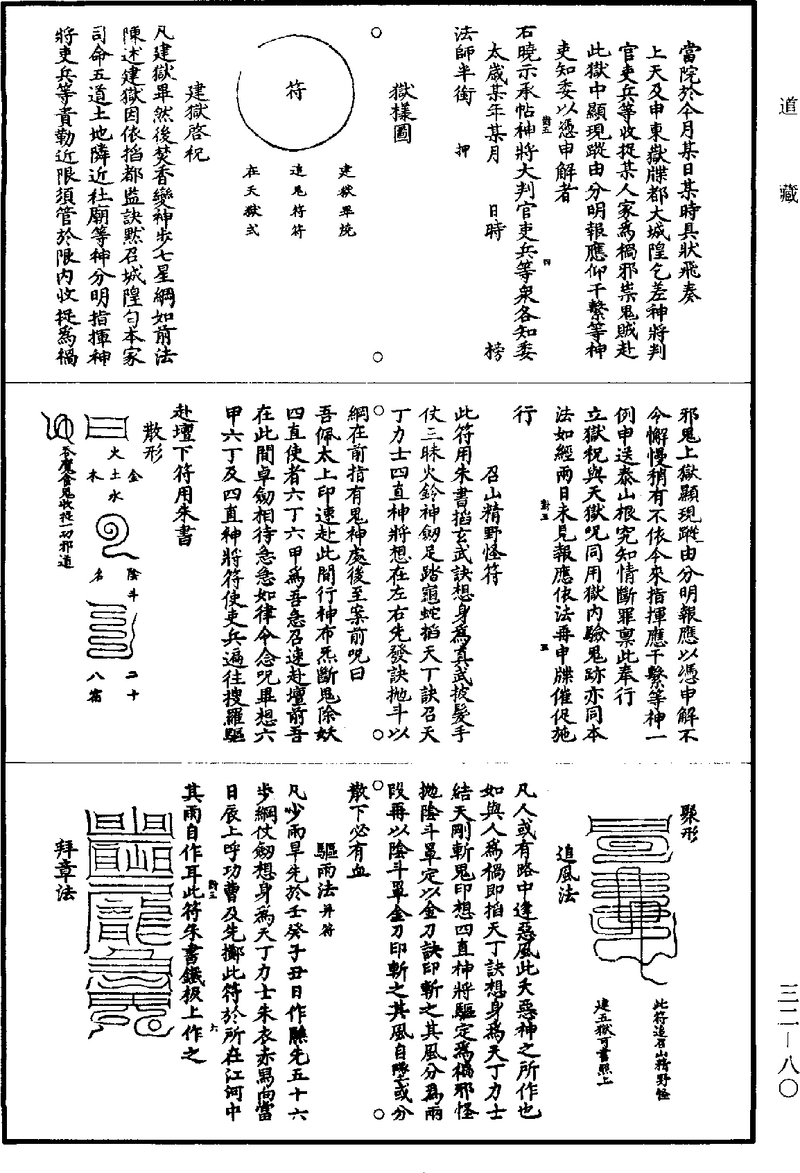 道藏
當院於今月某日某時具狀飛奏
上天及申東嶽牒都大城隍乞差神將判
官吏兵等收捉某人家為禍邪祟鬼賊赴
此獄中顯現蹤由分明報應仰干繫等神
吏知委以憑申解者
石曉示承帖神將大判官吏兵等衆各知委
太歲某年某月 日時 榜
法師半銜 押
獄樣圖
符
建獄畢燒
追鬼符符
在天獄式
建獄啓祝
凡建獄畢然後焚香變神步七星綱如前法
陳述建獄因依掐都監訣黙召城隍勻本家
司命五道土地隣近社廟等神分明指揮神
將吏兵等責勒近限須管於限内收捉為禍
邪鬼上獄顯現蹤由分明報應以憑申解不
今懈慢稍有不依今來指揮應干繫等神一
例申送泰山根究知情斷罪禀此奉行
立獄祝與天獄呪同用獄内驗鬼跡亦同本
法如經兩日未見報應依法再申牒催促施
行
召山精野怪符
此符用朱書掐玄武訣想身為真武披髮手
仗三昧火鈴神劒足踏龜蛇掐天丁訣召天
丁力士四直神將想在左右先發訣抛斗以
綱在前指有鬼神處後至案前呪曰
吾佩太上印速赴此間行神布炁斷鬼除妖
四直使者六丁六甲為吾急召速赴壇前吾
在此間卓劒相待急急如律令念呪畢想六
甲六丁及四直神將符使吏兵遍往搜羅驅
赴壇下符用朱書
散形
火土水
金
木
陰斗
名
二十
八宿
吞魔食鬼收捉一切邪道
聚形
此符追召山精野怪
建五獄可書照上
追風法
凡人或有路中逢惡風此天惡神之所作也
如與人為禍即掐天丁訣想身為天丁力士
結天剛斬鬼印想四直神將驅定為禍邪怪
抛陰斗罩定以金刀訣印斬之其風分為兩
段再以陰斗罩金刀印斬之其風自隊或分
散下必有血
驅雨法并符
凡少雨旱先於壬癸子丑日作醮先五十六
步綱仗劒想身為天丁力士朱衣赤馬向當
日辰上呼功曹及先擲此符於所在江河中
其雨自作耳此符朱書鐵板上作之
拜章法
三二—八〇